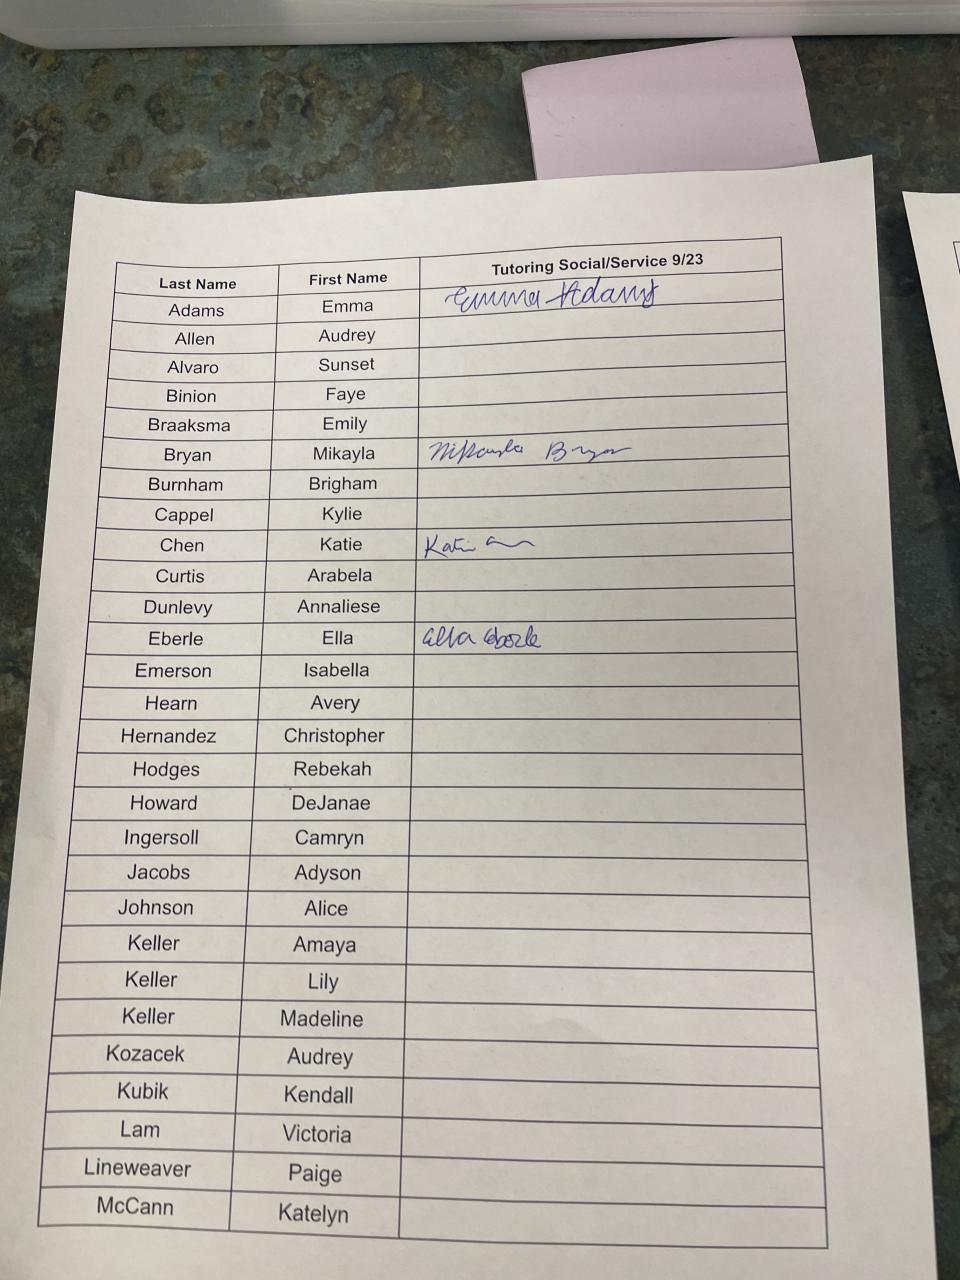 Last Name First Name Tutoring Social/Service 9/23
Adams Emma Emma Adams
Allen Audrey
Alvaro Sunset
Binion Faye
Braaksma Emily
Bryan Mikayla Mikayla Bryan
Burnham Brigham
Cappel Kylie
Chen Katie Katie
Curtis Arabela
Dunlevy Annaliese
Eberle Ella Ella Eberle
Emerson Isabella
Hearn Avery
Hernandez Christopher
Hodges Rebekah
Howard DeJanae
Ingersoll Camryn
Jacobs Adyson
Johnson Alice
Keller Amaya
Keller Lily
Keller Madeline
Kozacek Audrey
Kubik Kendall
Lam Victoria
Lineweaver Paige
McCann Katelyn